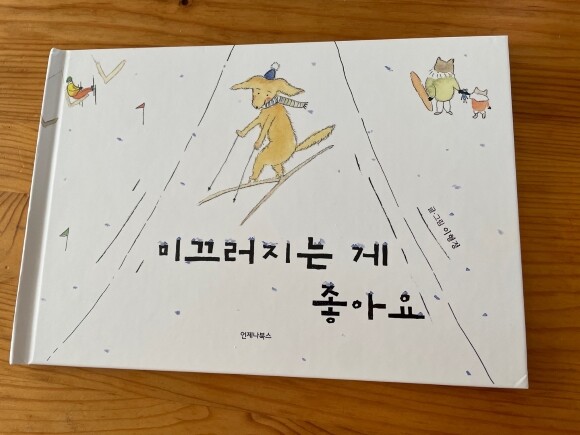 미끄러지는 게
좋아요
글·그림 이형정
언제나북스